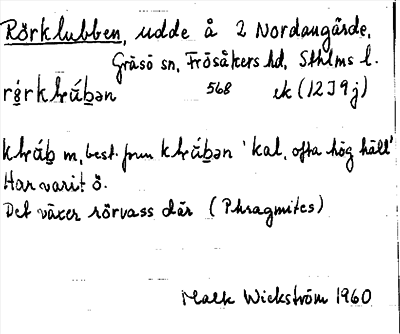 Rörklubben, udde å 2 Nordangårde,
Gräsö sn, Frösåkers hd, Sthlms l.
568 ek (12 I 9 j)
m, best. form 'kal, ofta hög häll'
Har varit ö.
Det växer rörvass där (Phragmites)
Wickström 1960